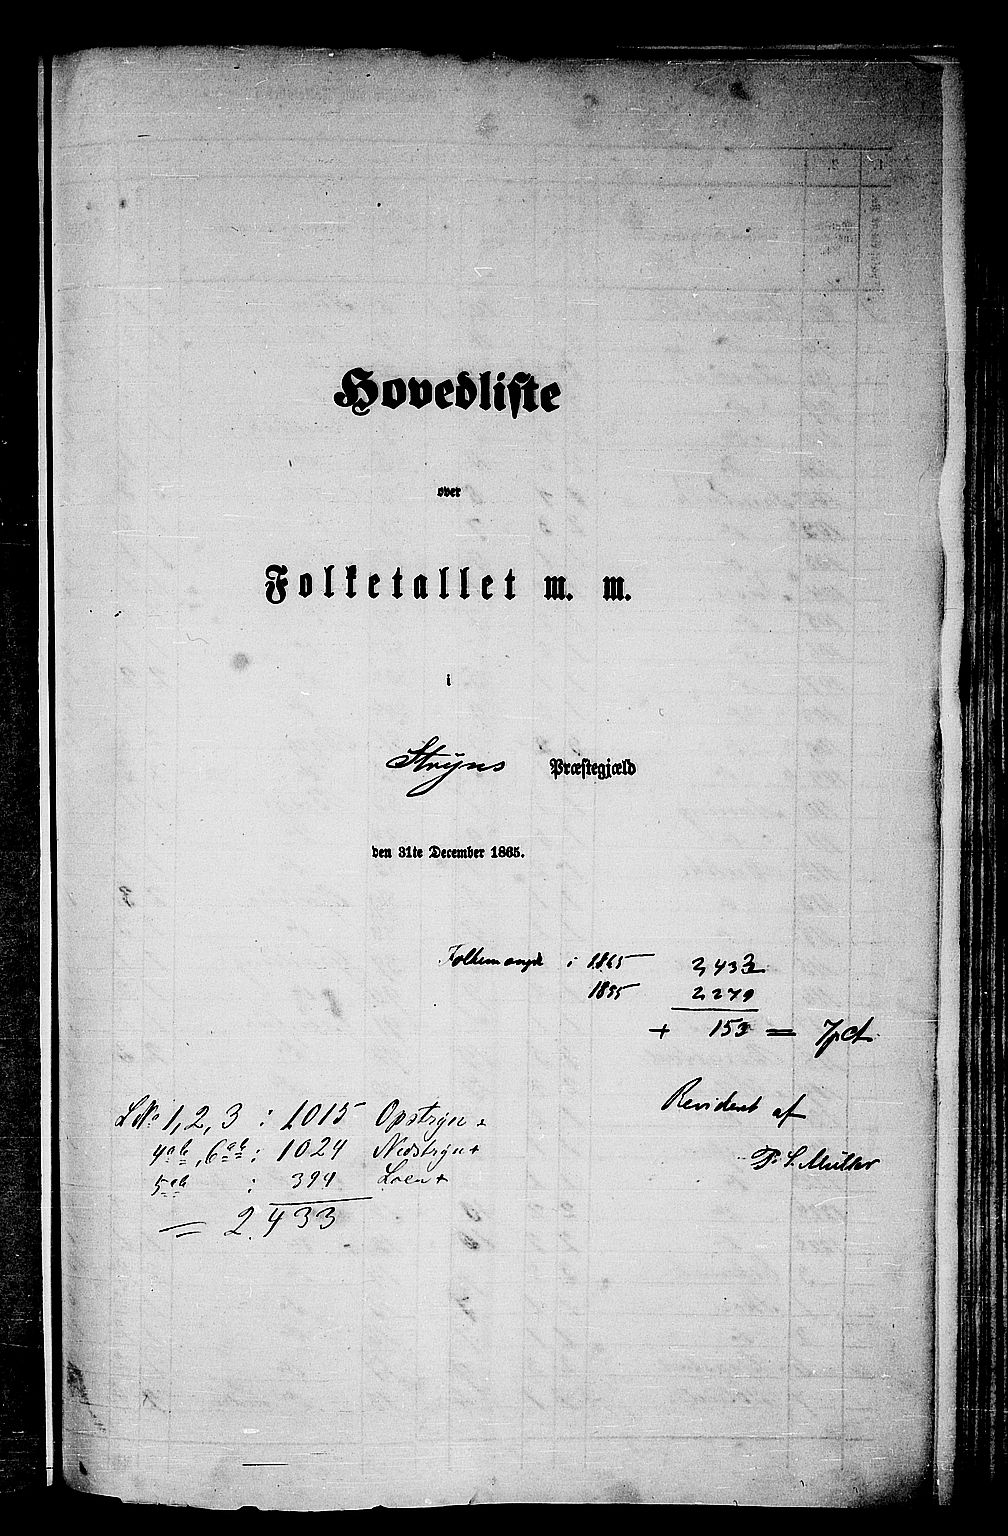 Hovedliste
over
Folketallet m. m.
i
Stryns Præstegjæld
den 31te December 1865.
Folkemængde i 1865 2,433
1855 2,279
+ 153 = 7pCt.
Revideret af
P. S. Müller
L No 1, 2, 3 : 1015 Opstryn
4 a b, 6 a b : 1024 Nedstryn
5 a b : 394 Loen
= 2,433